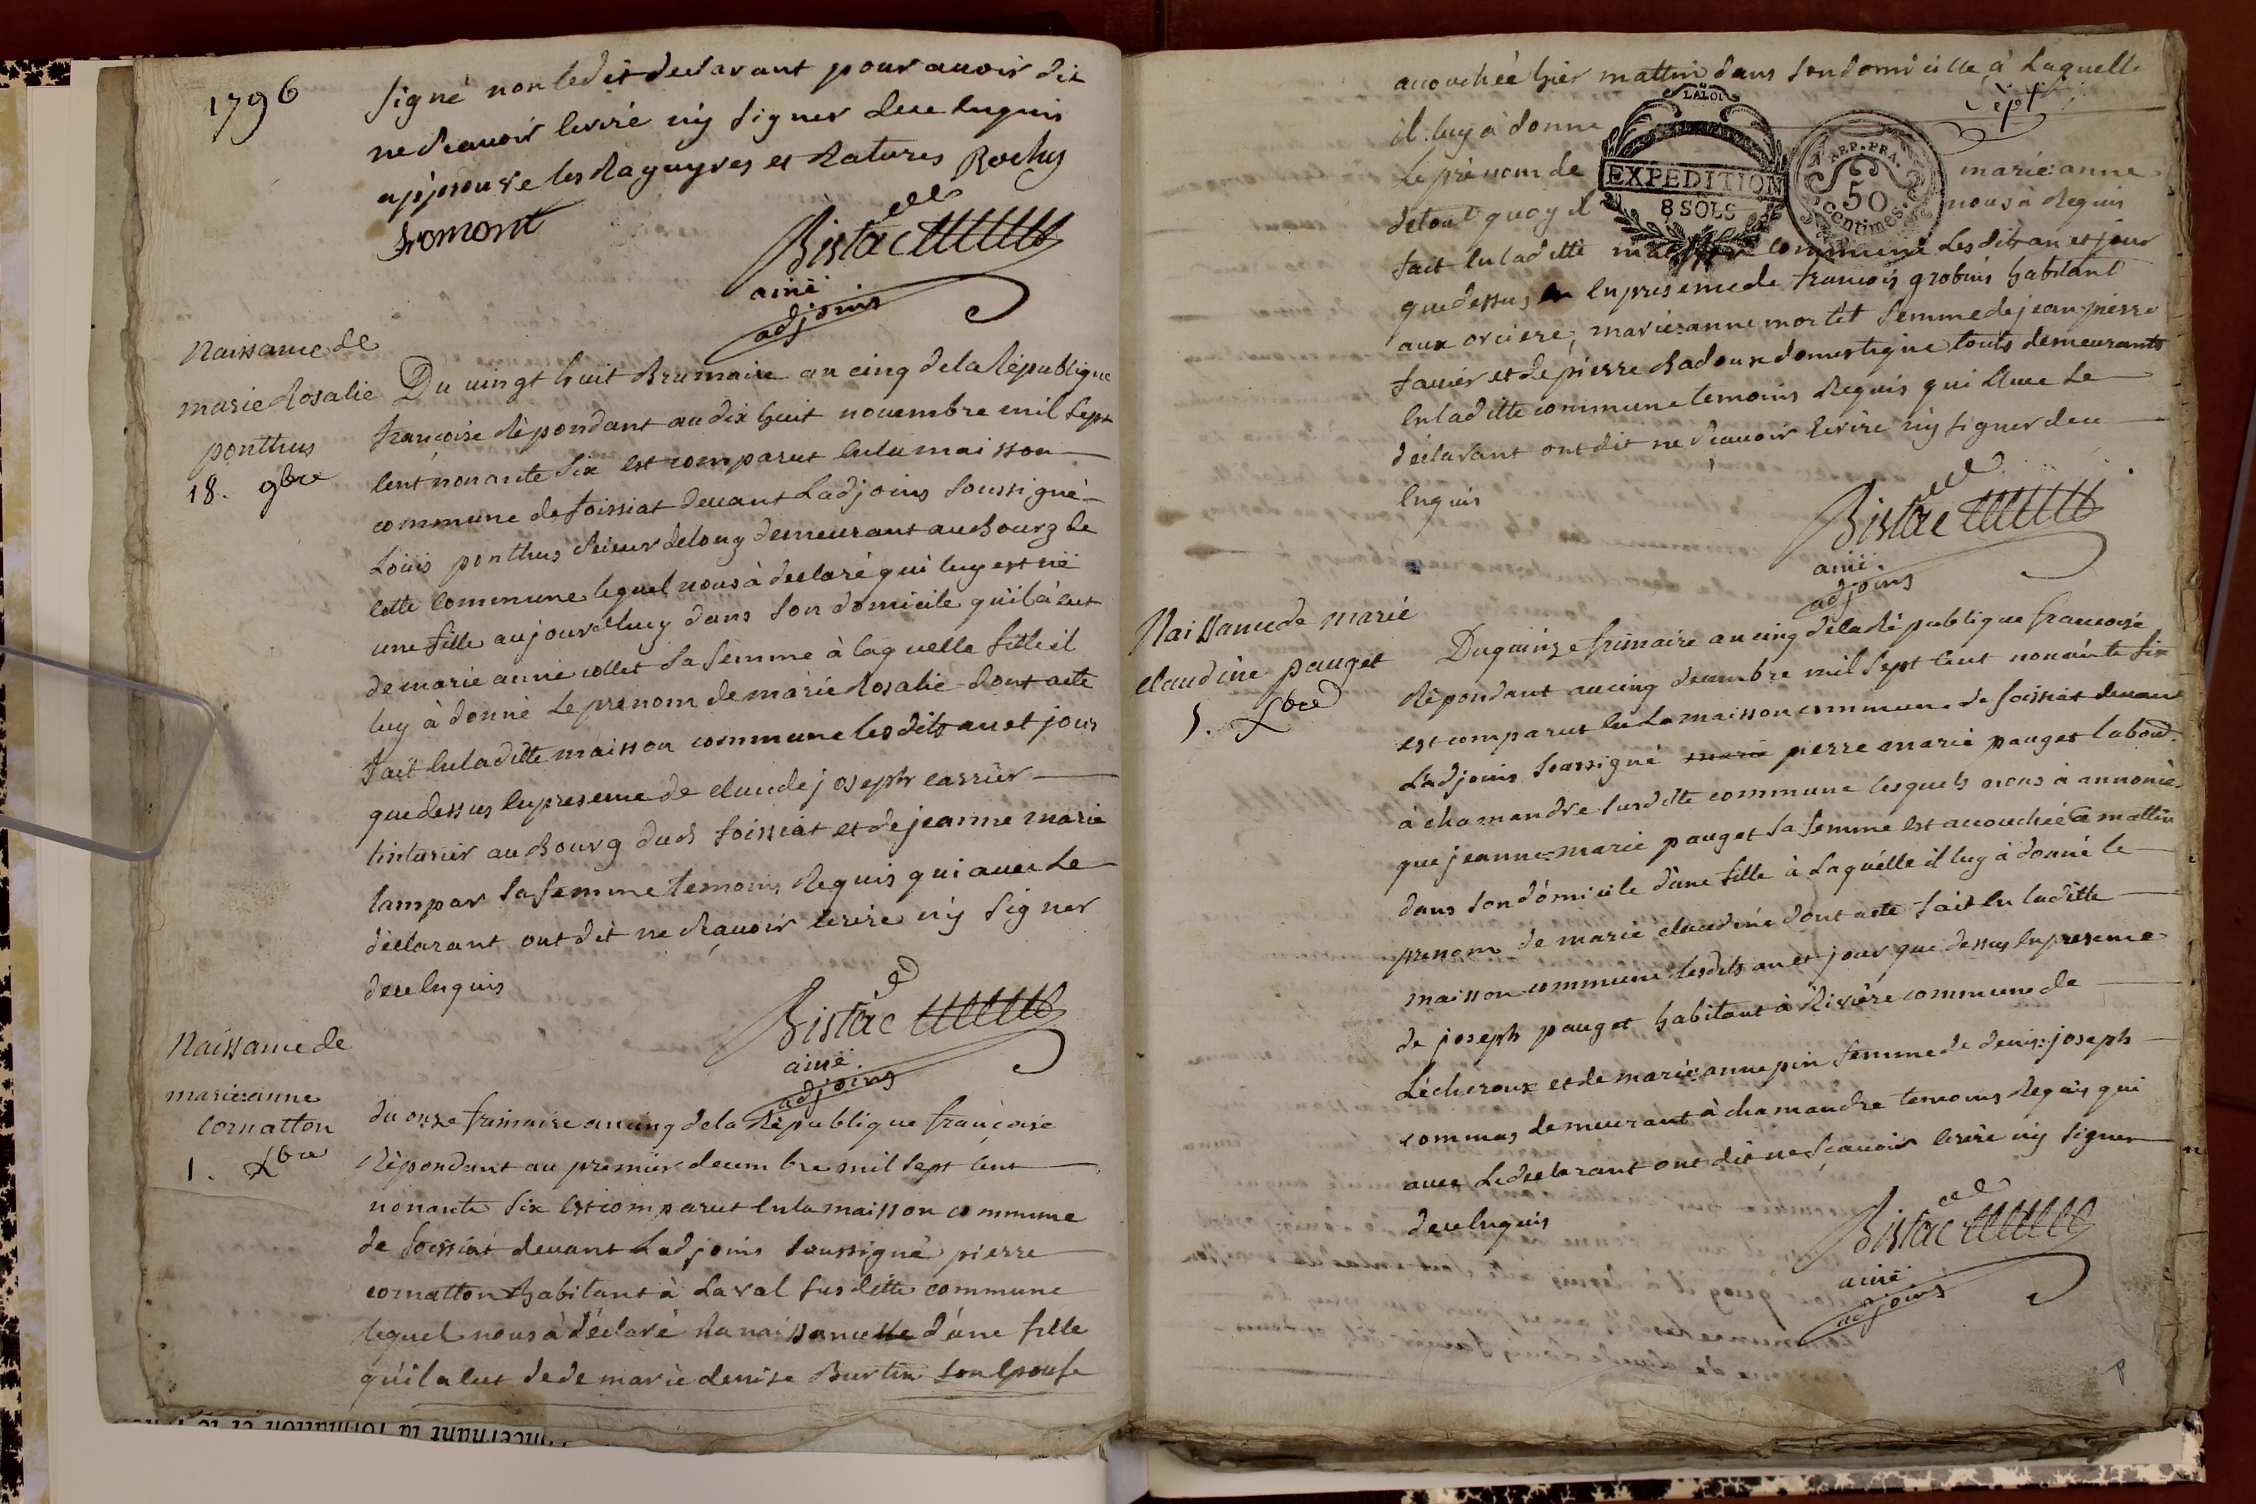 1796
signé non ledit declarant pour avoir dit
ne scavoir ecrire n'y signer de ce enquis
approuve les Rayuyres et Ratures Rochy
fromont
Bistac
ainé
adjoins
Naissance de
marie Rosalie
ponthus
18. 9bre
Du vingt huit Brumaire an cinq de la République
françoise Répondant au dix huit novembre mil sept
cent nonante six est comparut en la maisson
commune de foissiat devant Ladjoins soussigné
Loüis ponthus demeurant au Bourg de
cette commune lequel nous à declaré qui luy est né
une fille aujourdhuy dans son domicile quil à eut
de marie anne collet sa femme à laquelle fille il
luy à donné Le prenom de marie Rosalie dont acte
fait en la ditte maisson commune les dits an et jour
que dessus en presence de claude joseph carrier
tinturier au Bourg dud foissiat et de jeanne marie
lampar sa femme temoins Requis qui avec Le
déclarant ont dit ne sçavoir ecrire n'y signer
de ce enquis
Bistac
ainé
adjoins
Naissance de
marie:anne
Cornatton
1. Xbre
du onze frimaire an cinq de la République françoise
Répondant au premier decembre mil sept cent
nonante six est comparut en la maisson commune
de foissiat devant Ladjoins soussigné pierre
cornatton habitant à Laval susditte commune
lequel nous à déclaré la naissance d'une fille
qu'il a eut de de marie denise Burtin son Epouse
accouchée hier mattin dans son domicille à Laquelle
sept
il luy à donne
Le prénom de
marie:anne
detout quoy il
nous à Requis
LA LOI
EXPEDITION
8 SOLS
REP. FRA.
50
centimes.
fait en la ditte commune Les dits an et jour
que dessus en presence de francois grobins habitant
aux orciere, marie:anne mortet femme de jean pierre
favier et de pierre Badoux domestique touts demeurants
en la ditte commune temoins Requis qui Avec Le
déclarant ont dit ne scavoir ecrire n'y signer de ce
enquis
Bistac
ainé.
adjoins
Naissance de marie
claudine pauget
5. Xbre
Du quinze frimaire an cinq de la République francoise
Répondant au cinq decembre mil sept cent nonante six
est comparut en La maisson commune de foissiat devant
Ladjoins soussigné marie pierre marie pauget laboud.
à chamandre susditte commune lesquels nous à annoncé
que jeanne=marie pauget sa femme est accouchée ce mattin
dans son domicile d'une fille à Laquélle il luy à donné le
prenom de marie claudine dont acte fait en laditte
maisson commune lesdits an et jour que dessus en presence
de joseph pauget habitant à Rivière commune de
Lécheroux et de marie:anne pin femme de denis:joseph
commas demeurant à chamandre temoins Requis qui
avec Le déclarant ont dit ne sçavoir ecrire n'y signer
de ce enquis
Bistac
ainé.
adjoins